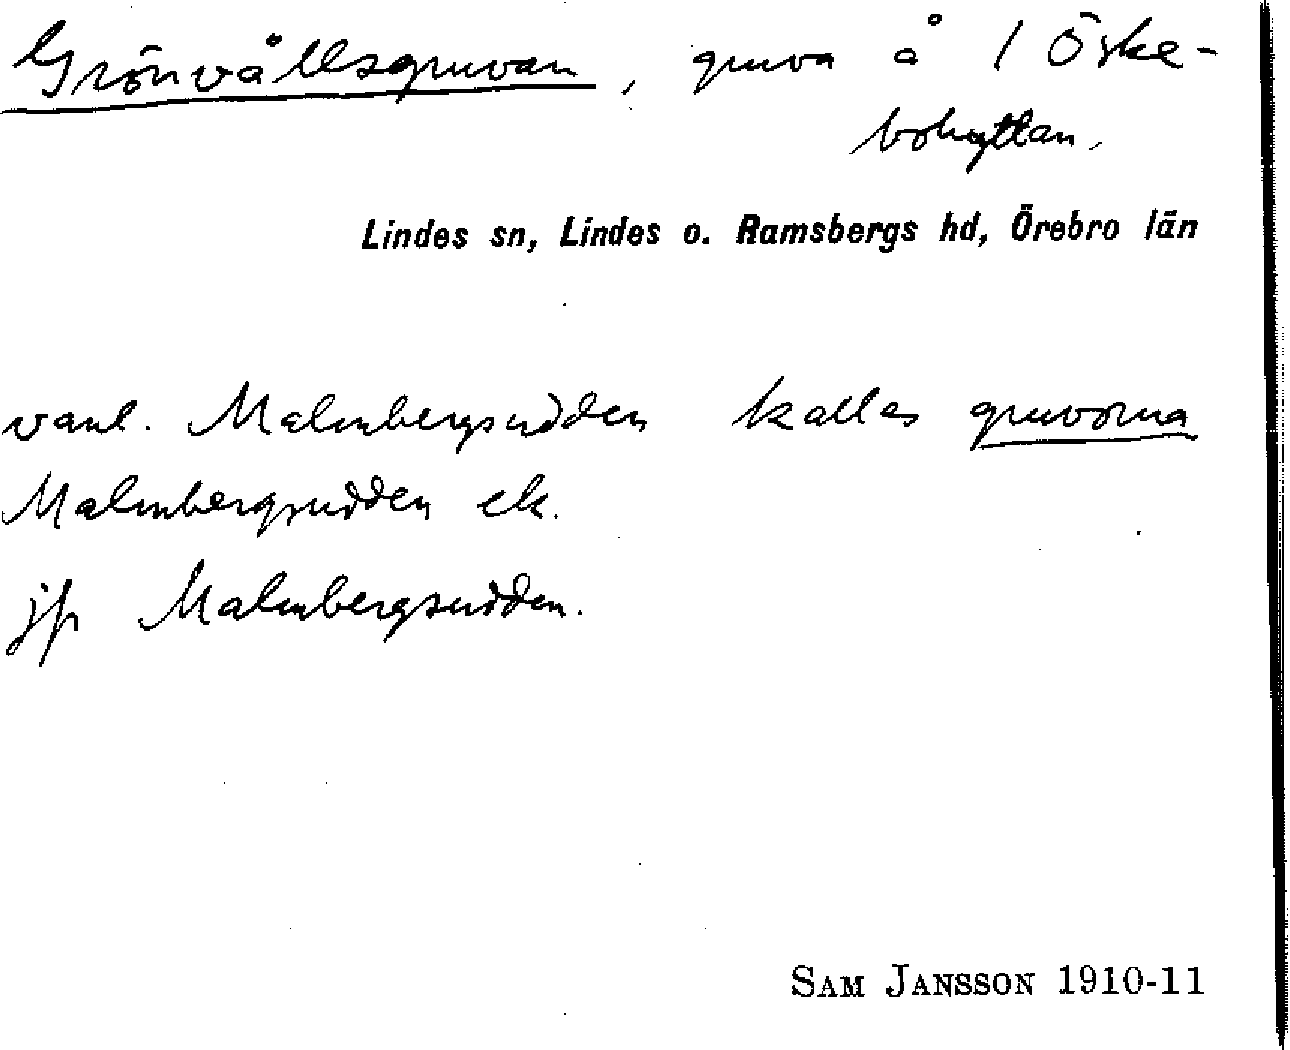 Grönvållsgruvan, gruva å 1 Öske-
bohyttan.
Lindes sn, Lindes o. Ramsbergs hd, Örebro län
vanl. Malmbergsudden kallas gruvorna
Malmbergsudden etc.
jfr Malmbergsudden.
SAM JANSSON 1910-11